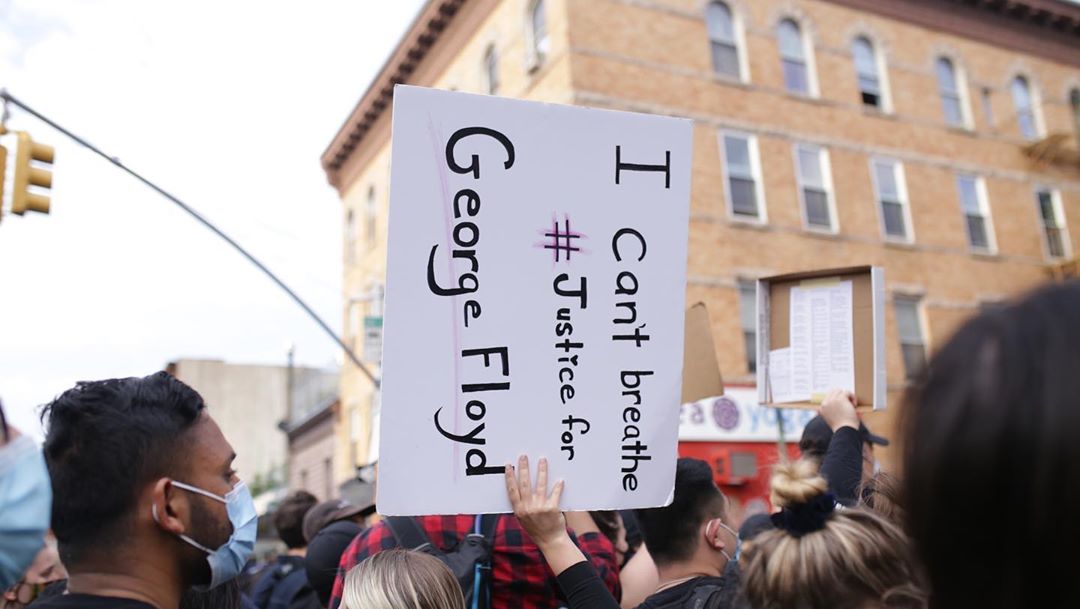 I can't breathe
# Justice for
George Floyd